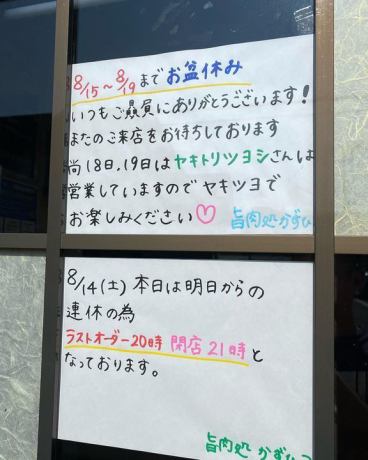 8/15～8/19までお盆休み
いつもご贔屓にありがとうございます!
またのご来店をお待ちしております
尚18日,19日はヤキトリツヨシさんは
営業していますのでヤキツヨで
お楽しみください♡
旨肉処かずひ
8/14(土)本日は明日からの
連休の為
ラストオーダー20時 閉店21時と
なっております。
旨肉処 かずひ